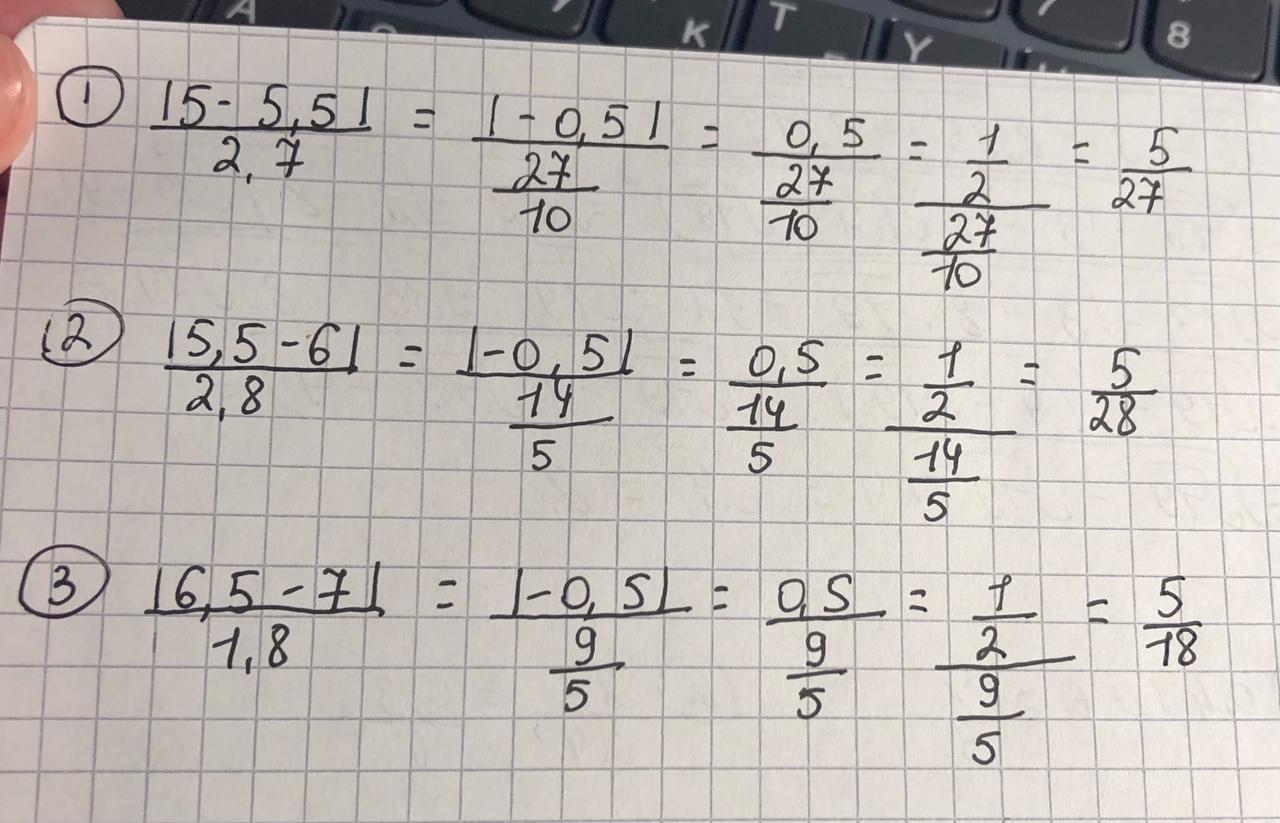 A K T Y 8
① |5 - 5,5| / 2,7 = |-0,5| / (27/10) = 0,5 / (27/10) = (1/2) / (27/10) = 5/27
② |5,5 - 6| / 2,8 = |-0,5| / (14/5) = 0,5 / (14/5) = (1/2) / (14/5) = 5/28
③ |6,5 - 7| / 1,8 = |-0,5| / (9/5) = 0,5 / (9/5) = (1/2) / (9/5) = 5/18